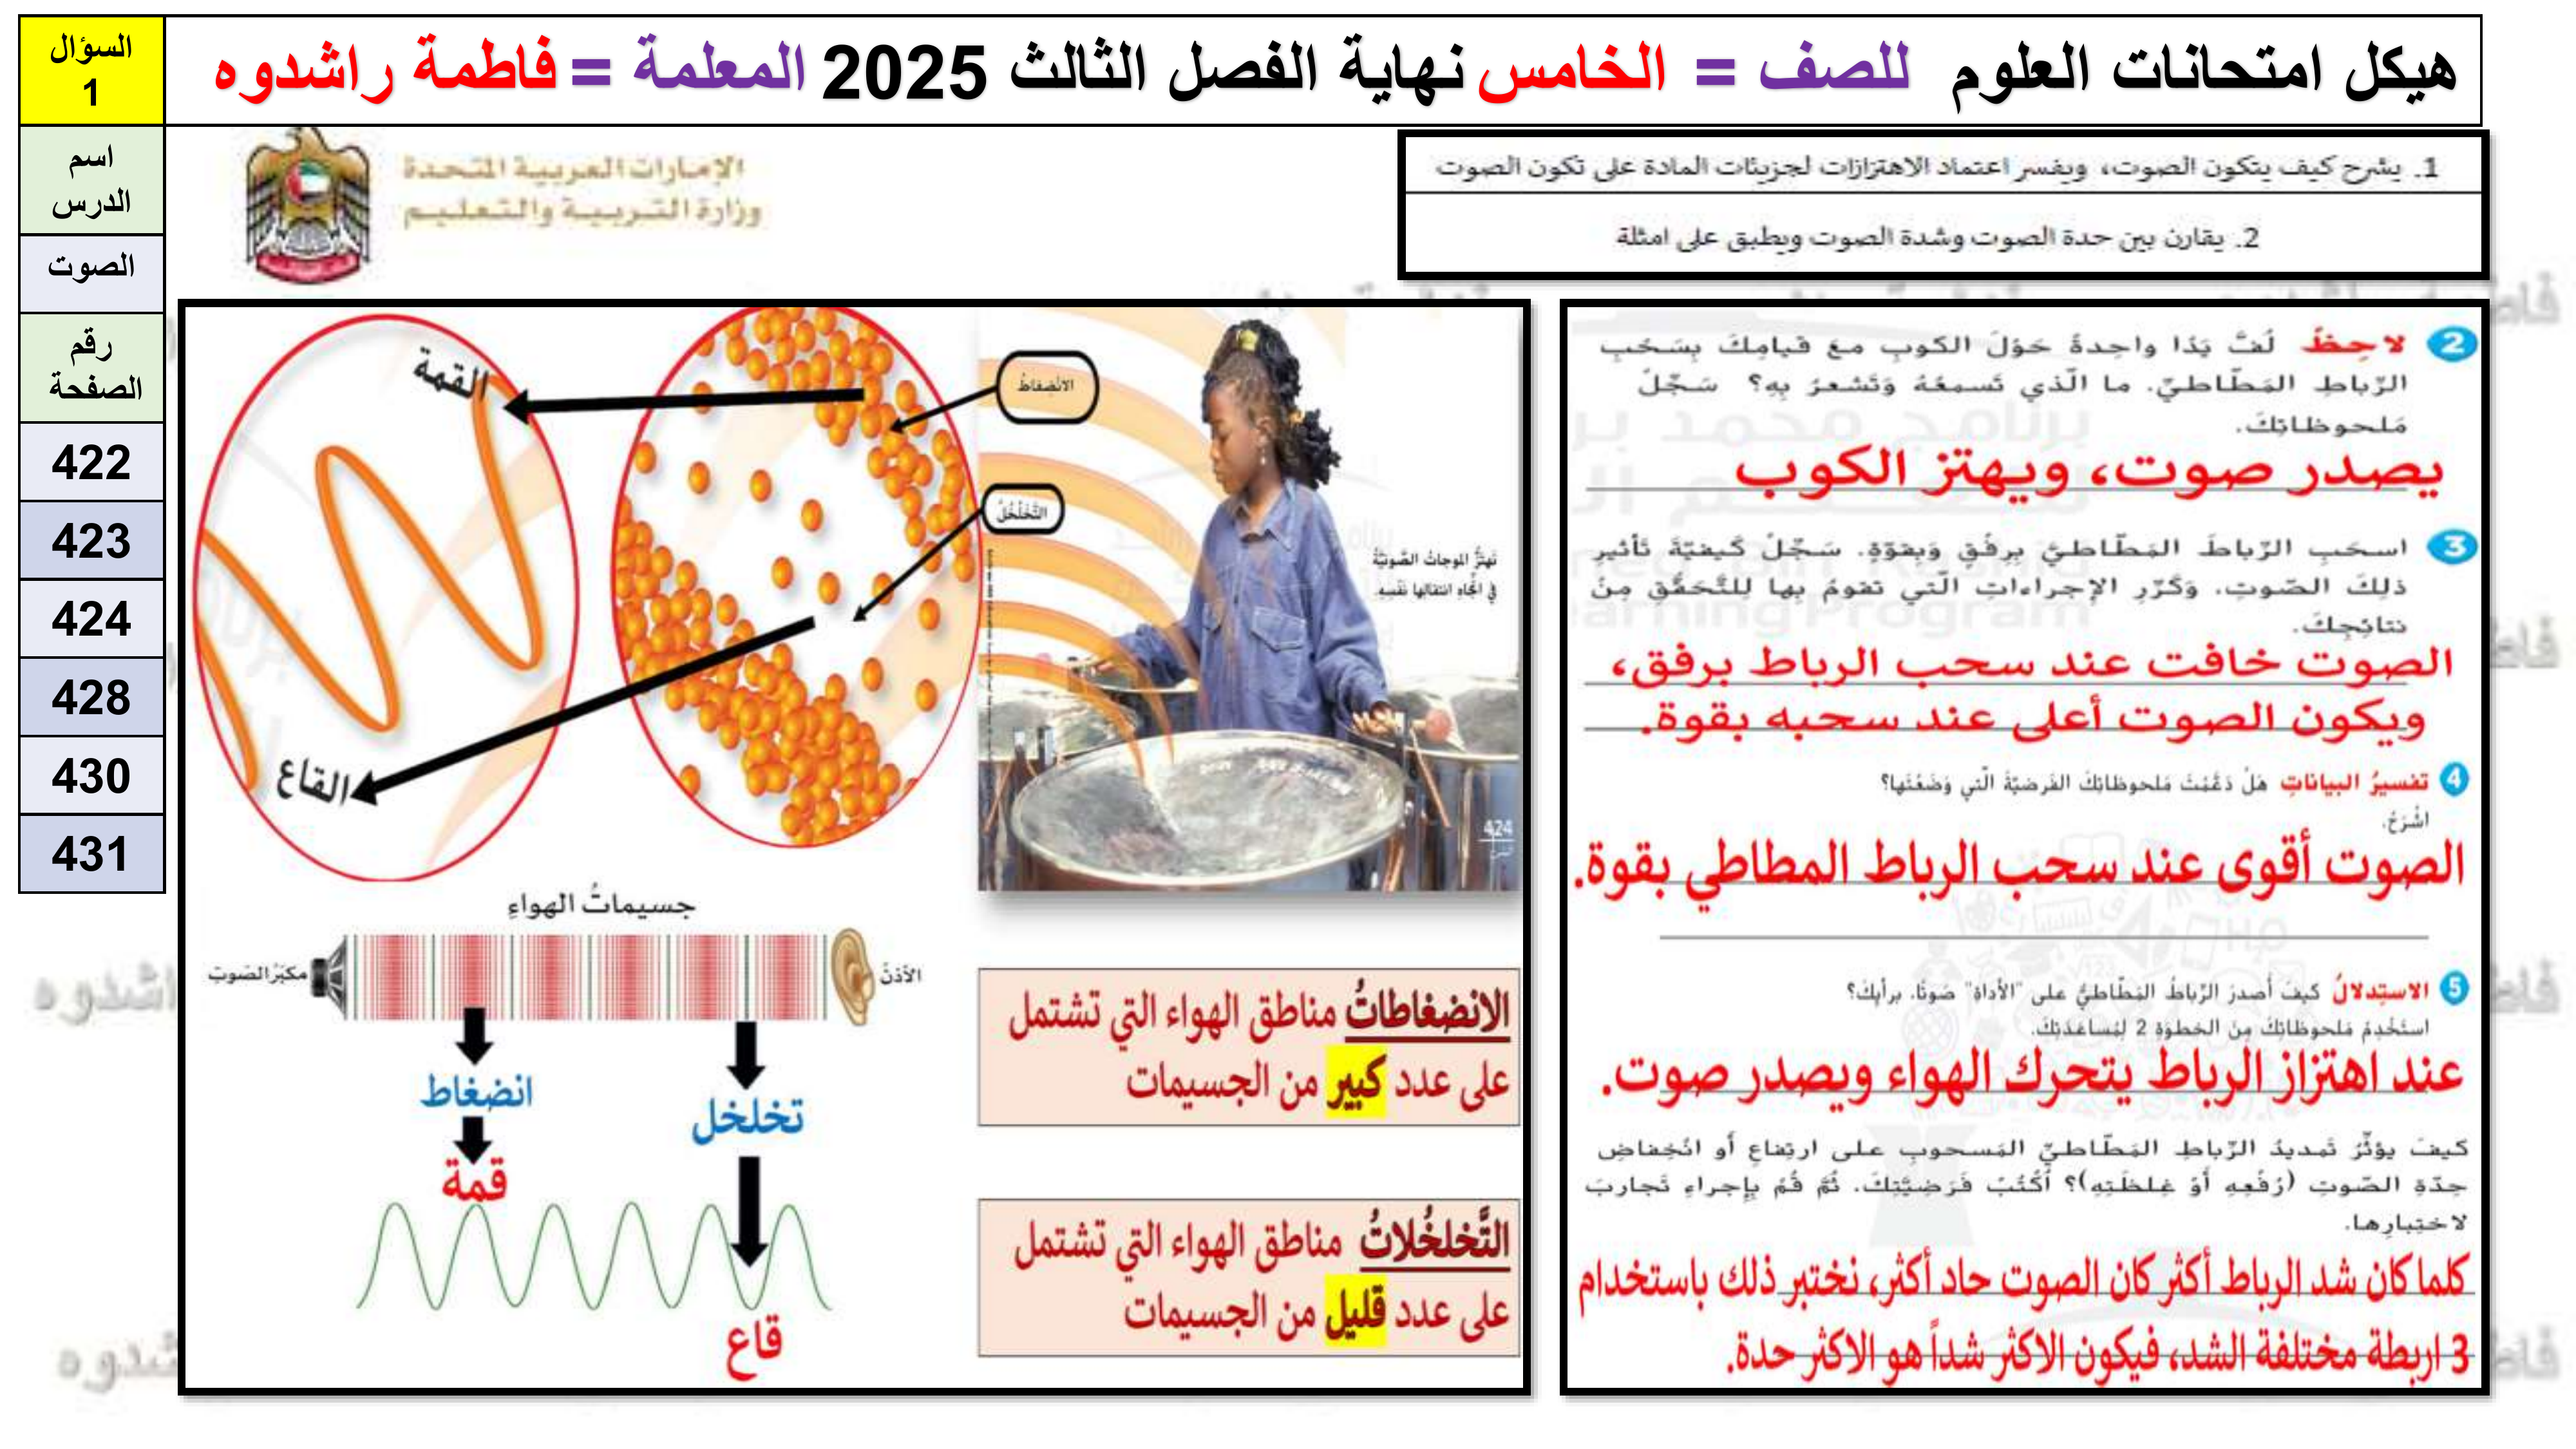 هيكل امتحانات العلوم للصف = الخامس نهاية الفصل الثالث 2025 المعلمة = فاطمة راشدوه
السؤال
1
اسم
الدرس
الصوت
رقم
الصفحة
422
423
424
428
430
431
الإمارات العربية المتحدة
وزارة التربية والتعليم
1. يشرح كيف يتكون الصوت، ويفسر اعتماد الاهتزازات لجزيئات المادة على تكون الصوت
2. يقارن بين حدة الصوت وشدة الصوت ويطبق على امثلة
2 لاحِظْ لُفَّ يَدًا واحِدةً حَوْلَ الكوبِ معَ قيامِكَ بِسَحْبِ
الرِّباطِ المَطّاطيِّ. ما الَّذي تَسمعُهُ وَتَشعرُ بِهِ؟ سَجِّلْ
مَلحوظاتِكَ.
يصدر صوت، ويهتز الكوب
3 اسحَبِ الرِّباطَ المَطّاطيَّ بِرِفْقٍ وَبِقوّةٍ. سَجِّلْ كَيفيّةَ تَأثيرِ
ذلِكَ الصّوتِ. وَكَرِّرِ الإجراءاتِ الَّتي تقومُ بِها لِلتَّحَقُّقِ مِنْ
نتائِجِكَ.
الصوت خافت عند سحب الرباط برفق،
ويكون الصوت أعلى عند سحبه بقوة.
4 تفسيرُ البياناتِ هَلْ دَعَّمَتْ مَلحوظاتِكَ الفَرضيّةَ الَّتي وَضَعْتَها؟
اشْرَحْ.
الصوت أقوى عند سحب الرباط المطاطي بقوة.
5 الاستِدلالُ كيفَ أصدرَ الرِّباطُ المَطّاطيُّ على "الأداةِ" صَوتًا، برأيِكَ؟
استَخْدِمْ مَلحوظاتِكَ مِنَ الخطوةِ 2 لِمُساعَدَتِكَ.
عند اهتزاز الرباط يتحرك الهواء ويصدر صوت.
كيفَ يؤثِّرُ تَمديدُ الرِّباطِ المَطّاطيِّ المَسحوبِ على ارتِفاعِ أو انْخِفاضِ
حِدّةِ الصَّوتِ (رَفْعِهِ أَوْ غِلظَتِهِ)؟ اُكْتُبْ فَرَضيَّتِكَ. ثُمَّ قُمْ بِإجراءِ تَجارِبَ
لاختِبارِها.
كلما كان شد الرباط أكثر كان الصوت حاد أكثر، نختبر ذلك باستخدام
3 اربطة مختلفة الشد، فيكون الاكثر شداً هو الاكثر حدة.
القمة
القاع
الانضِغاطُ
التَّخَلخُلُ
تهتزُّ الموجاتُ الصَّوتيَّةُ
في اتِّجاهِ انتقالِها نَفْسِهِ.
424
جسيماتُ الهواءِ
مكبّرُ الصَوتِ
الأذنُ
انضغاط
تخلخل
قمة
قاع
الانضغاطاتُ مناطق الهواء التي تشتمل
على عدد كبير من الجسيمات
التَّخلخُلاتُ مناطق الهواء التي تشتمل
على عدد قليل من الجسيمات